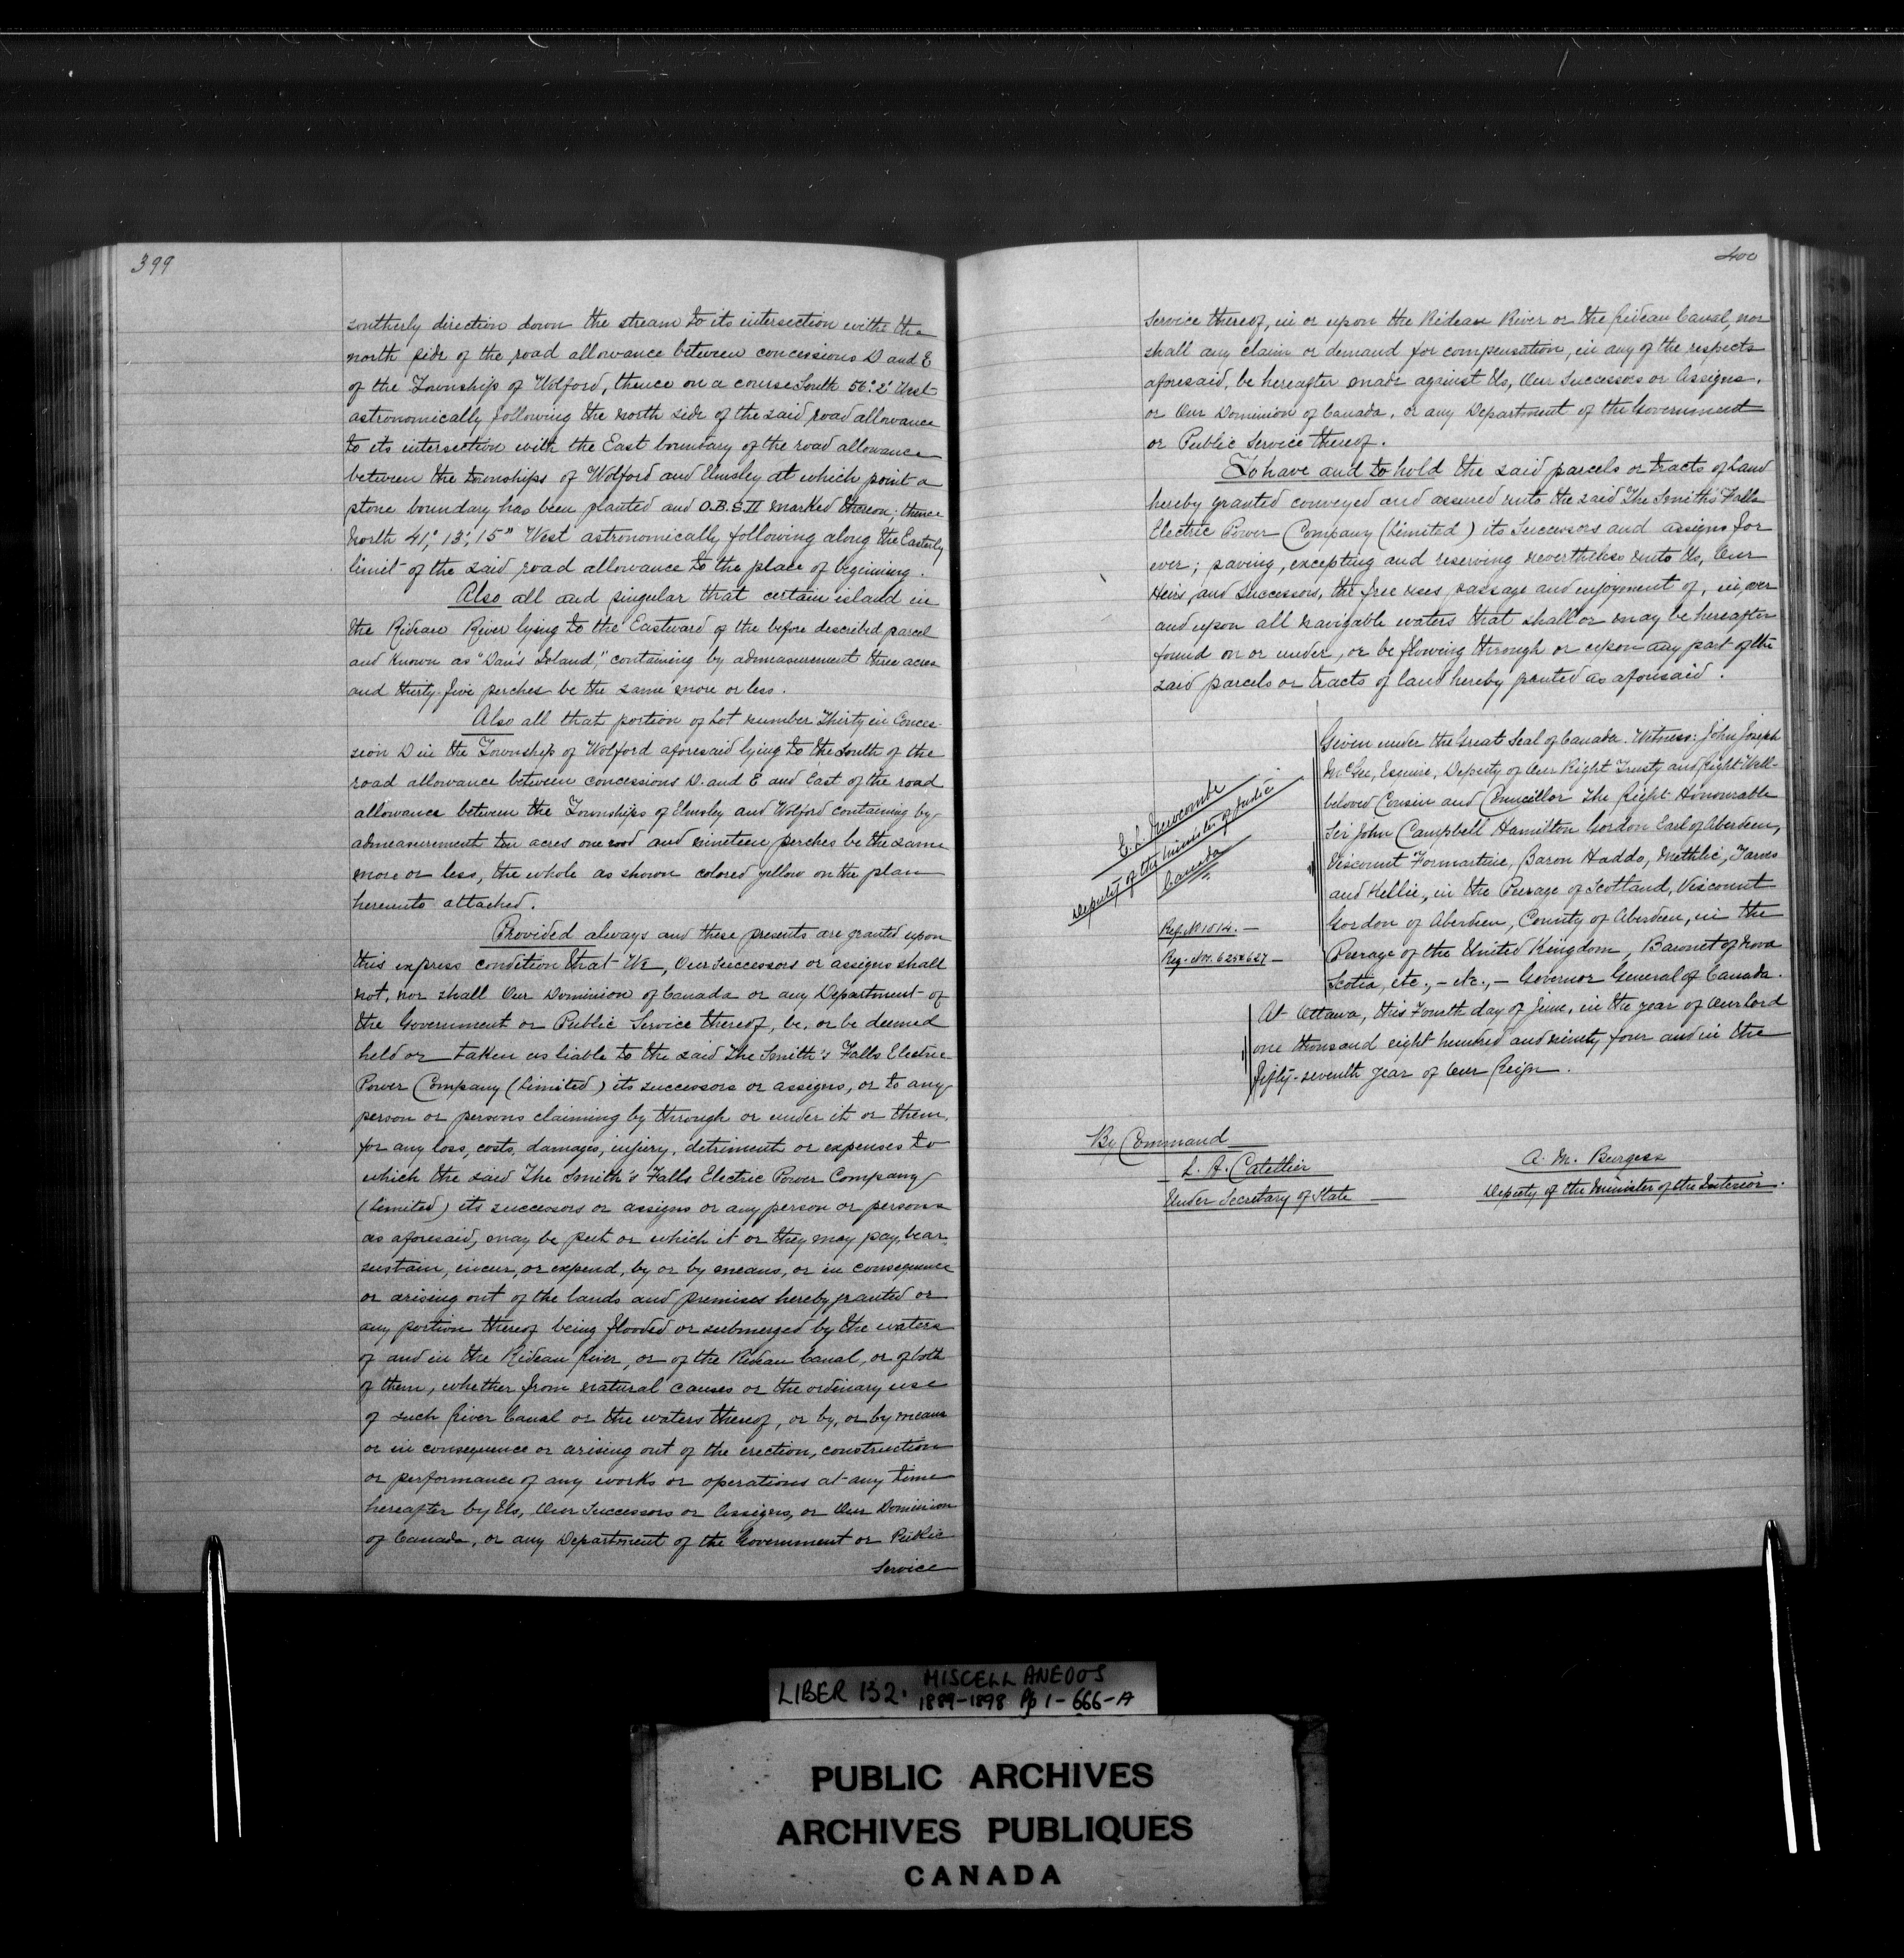 399
southerly direction down the stream to its intersection with the
north side of the road allowance between concessions D and E
of the Township of Wolford, thence on a course South 56° 2' West
astronomically following the north side of the said road allowance
to its intersection with the East boundary of the road allowance
between the townships of Wolford and Elmsley at which point a
stone boundary has been planted and O.B.S. II marked thereon; thence
North 41° 13' 15" West astronomically following along the Easterly
limit of the said road allowance to the place of beginning.
Also all and singular that certain island in
the Rideau River lying to the Eastward of the before described parcel
and known as "Dan's Island," containing by admeasurement three acres
and thirty-five perches be the same more or less.
Also all that portion of Lot number Thirty in Conces-
sion D in the Township of Wolford aforesaid lying to the South of the
road allowance between concessions D. and E and East of the road
allowance between the Townships of Elmsley and Wolford containing by
admeasurement ten acres one rood and nineteen perches be the same
more or less, the whole as shown colored yellow on the plan
hereunto attached.
Provided always and these presents are granted upon
this express condition that We, Our Successors or assigns shall
not, nor shall Our Dominion of Canada or any Department of
the Government or Public Service thereof, be, or be deemed
held or taken as liable to the said The Smith's Falls Electric
Power Company (Limited) its successors or assigns, or to any
person or persons claiming by through or under it or them,
for any loss, costs, damages, injury, detriment or expenses to
which the said The Smith's Falls Electric Power Company
(Limited) its successors or assigns or any person or persons
as aforesaid, may be put or which it or they may pay, bear,
sustain, incur, or expend, by or by means, or in consequence
or arising out of the lands and premises hereby granted or
any portion thereof being flooded or submerged by the waters
of and in the Rideau River, or of the Rideau Canal, or of both
of them, whether from natural causes or the ordinary use
of such River Canal or the waters thereof, or by, or by means
or in consequence or arising out of the erection, construction
or performance of any works or operations at any time
hereafter by Us, Our Successors or Assigns, or Our Dominion
of Canada, or any Department of the Government or Public
Service
400
Service thereof, in or upon the Rideau River or the Rideau Canal, nor
shall any claim or demand for compensation, in any of the respects
aforesaid, be hereafter made against Us, Our Successors or Assigns,
or Our Dominion of Canada, or any Department of the Government
or Public Service thereof.
To have and to hold the said parcels or tracts of land
hereby granted conveyed and assured unto the said The Smith's Falls
Electric Power Company (Limited) its Successors and assigns for
ever; saving, excepting and reserving nevertheless unto Us, Our
Heirs, and Successors, the free uses, passage and enjoyment of, in, over
and upon all navigable waters that shall or may be hereafter
found on or under, or be flowing through or upon any part of the
said parcels or tracts of land hereby granted as aforesaid.
Given under the Great Seal of Canada. Witness: John Joseph
McGee, Esquire, Deputy of Our Right Trusty and Right Well-
beloved Cousin and Councillor The Right Honourable
Sir John Campbell Hamilton Gordon Earl of Aberdeen,
Viscount Formartine, Baron Haddo, Methlic, Tarves
and Kellie, in the Peerage of Scotland, Viscount
Gordon of Aberdeen, County of Aberdeen, in the
Peerage of the United Kingdom, Baronet of Nova
Scotia, etc., - etc., - Governor General of Canada.
E. L. Newcombe
Deputy of the Minister of Justice
Canada
Ref. No 1514. -
Reg. Nos. 625 & 627 -
At Ottawa, this Fourth day of June, in the year of Our Lord
one thousand eight hundred and ninety four and in the
fifty-seventh year of Our Reign.
By Command
L. A. Catellier
Under Secretary of State
A. M. Burgess
Deputy of the Minister of the Interior.
LIBER 132. MISCELLANEOUS
1889-1898 Pp 1-666-A
PUBLIC ARCHIVES
ARCHIVES PUBLIQUES
CANADA